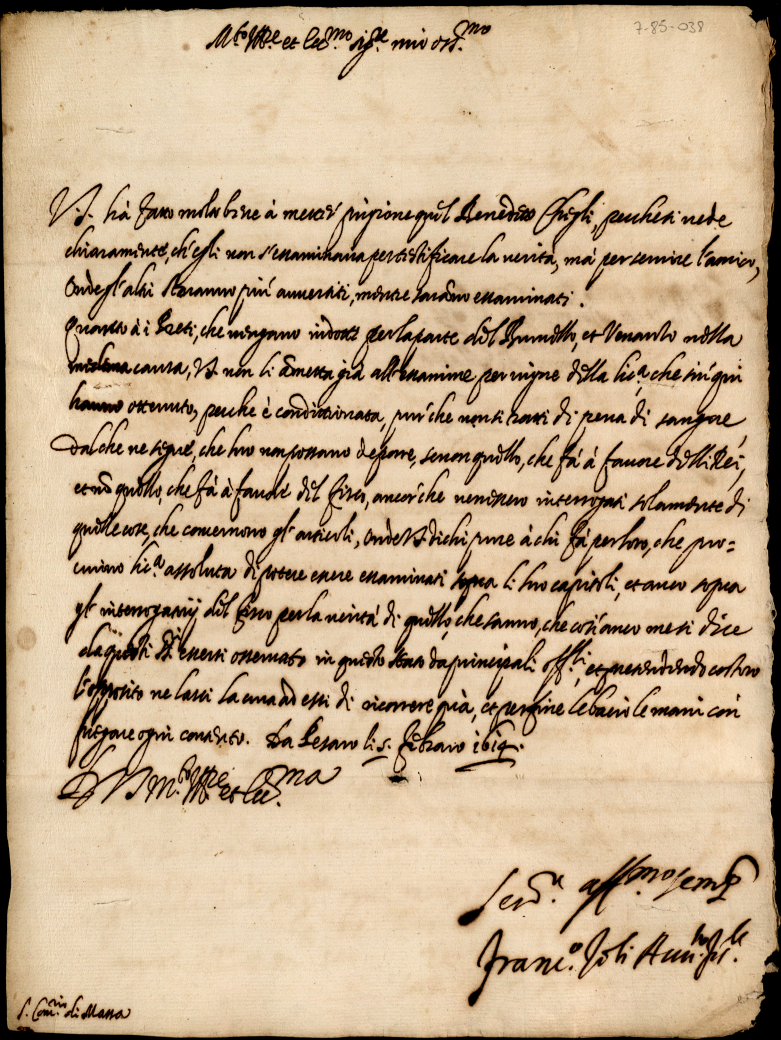 7-85-038
M.to Ill.re et Ecc.mo sig.re mio oss.mo
V.S. hà fatto molto bene à metter prigione quel Benedetto Chigli, perche si vede
chiaramente, ch'egli non s'essaminava per testificare la verità, mà per servire l'amico,
onde gl'altri staranno più avvertiti, mentre saranno essaminati.
Quanto à i Preti, che vengano indotti per la parte del Brunetto, et Venanto nella
medema causa, VS non li ametta già all'essamine per vigore della lic.a che sin qui
hanno ottenuto, perche è conditionata, pur che non si tratti di pena di sangue,
Dal che ne segue, che loro non possano deporre, se non quello, che fà à favore delli Rei,
et nõ quello, che fà à favore del fisco, ancor che venissero interrogati solamente di
quelle cose, che concernono gl'articoli, onde VS dichi pure à chi fà per loro, che pro=
curino lic.a assoluta di potere essere essaminati sopra li loro capitoli, et anco sopra
gl'interrogatorij del fisco per la verità di quello, che sanno, che così anco mesi dice
da questi SS.ri essersi osservato in questo stato da principali off.li, et pretendendo costoro
l'opposito ne lassi la cura ad essi di ricorrere quà, et per fine le bacio le mani con
pregare ogni contento. Da Pesaro li 5. Febraro 1614.
D VS M.to Ill.re et Ecc.ma
Ser.re aff.mo semp.
Franc.o
S. Com.rio di Massa